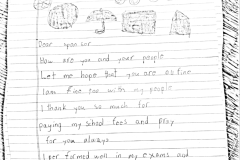 Dear sponsor
How are you and your people
Let me hope that you are as fine
I am fine too with my people
I thank you so much for
paying my school fees and pray
for you always
I performed well in my exams and